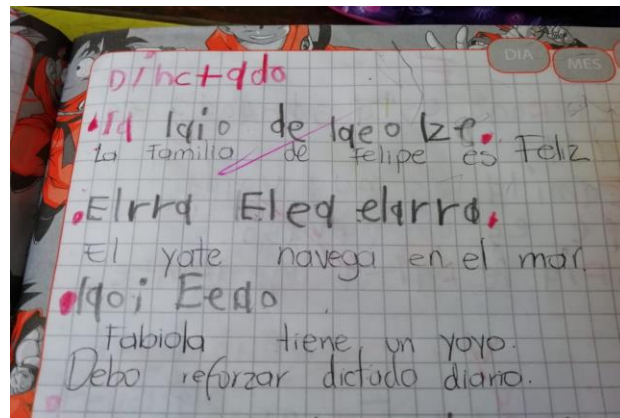 DIA MES
Dihctado
Ia laio de laeo lze.
La Familia de Felipe es Feliz
.Elrra Elea elarra.
El yate navega en el mar.
laoi Eedo
Fabiola tiene un yoyo.
Debo reforzar dictado diario.